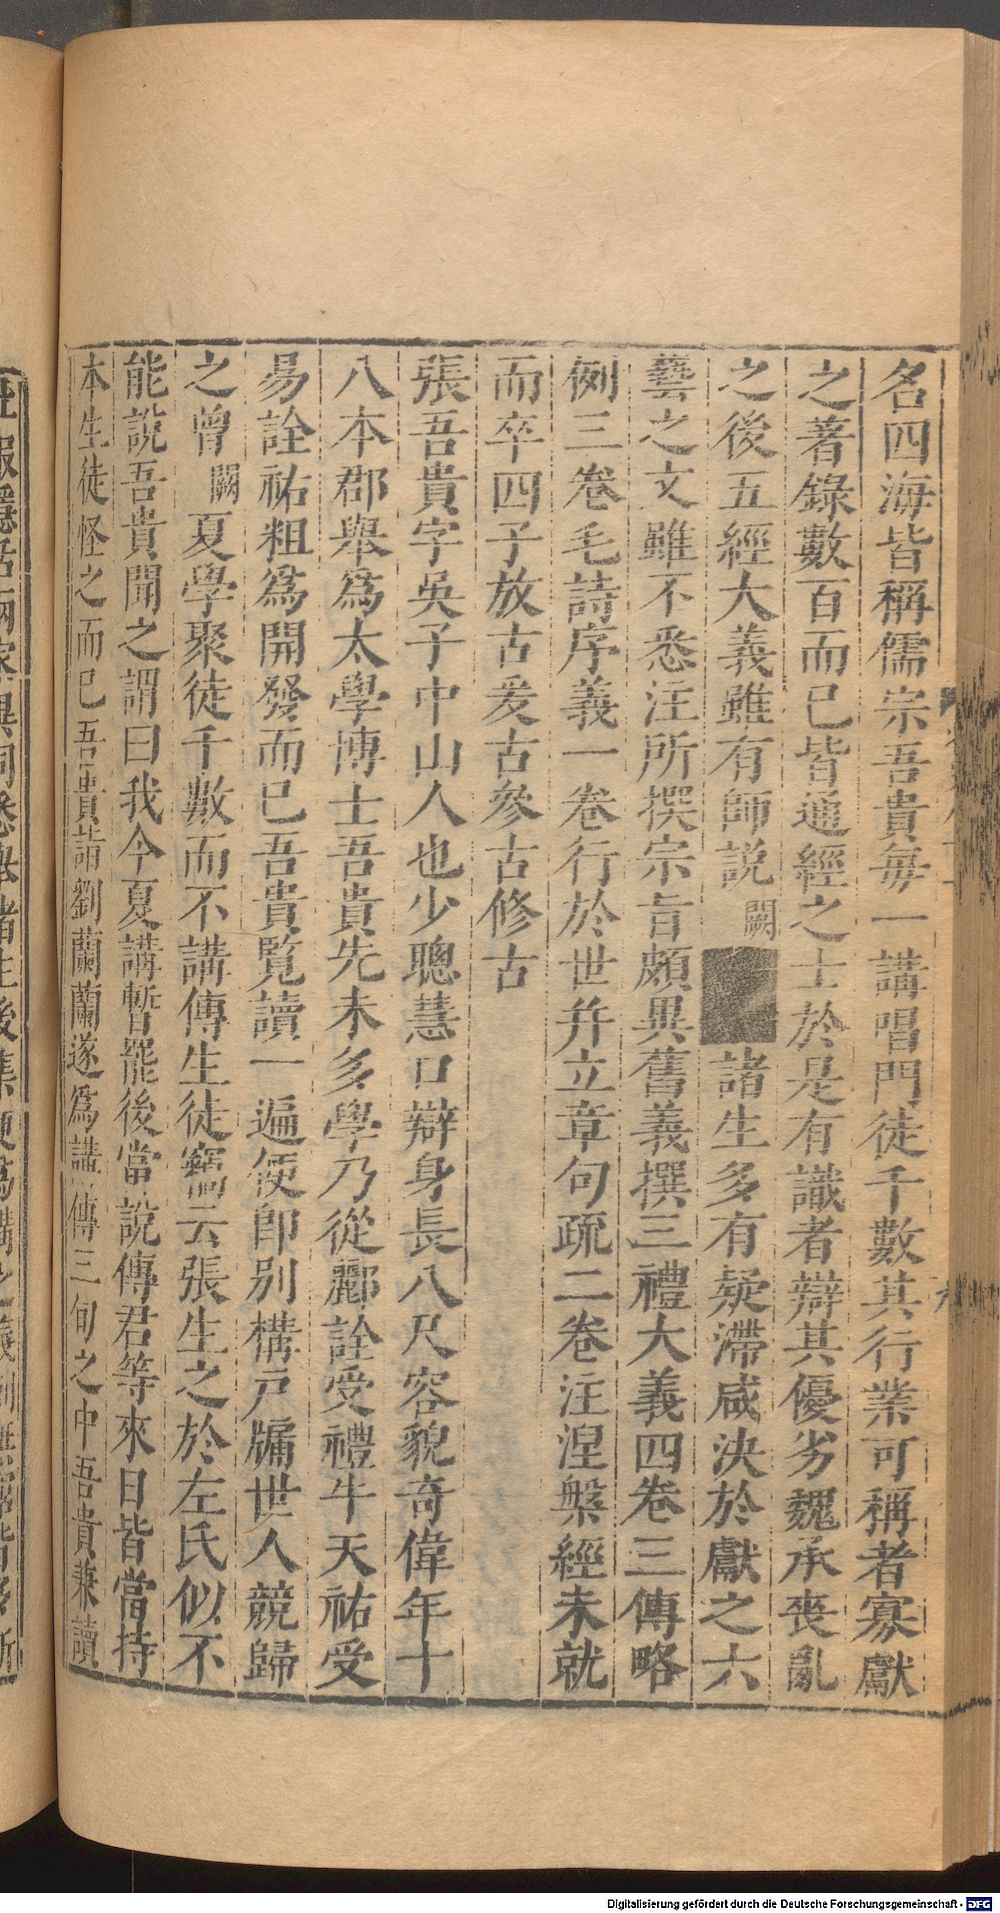 名四海皆稱儒宗吾貴每一講唱門徒千數其行業可稱者寡獻
之著錄數百而已皆通經之士於是有識者辯其優劣魏承喪亂
之後五經大義雖有師說闕諸生多有疑滯咸決於獻之六
藝之文雖不悉注所撰宗旨頗異舊義撰三禮大義四卷三傳略
例三卷毛詩序義一卷行於世并立章句疏二卷注涅槃經未就
而卒四子放古爰古參古修古
張吾貴字吳子中山人也少聰慧口辯身長八尺容貌奇偉年十
八本郡舉為太學博士吾貴先未多學乃從酈詮受禮牛天祐受
易詮祐粗為開發而已吾貴覽讀一遍便即別構戶牖世人競歸
之曾闕夏學聚徒千數而不講傳生徒竊云張生之於左氏似不
能說吾貴聞之謂曰我今夏講暫罷後當說傳君等來日皆當持
本生徒怪之而已吾貴詣劉蘭蘭遂為講傳三旬之中吾貴兼讀
Digitalisierung gefördert durch die Deutsche Forschungsgemeinschaft - DFG